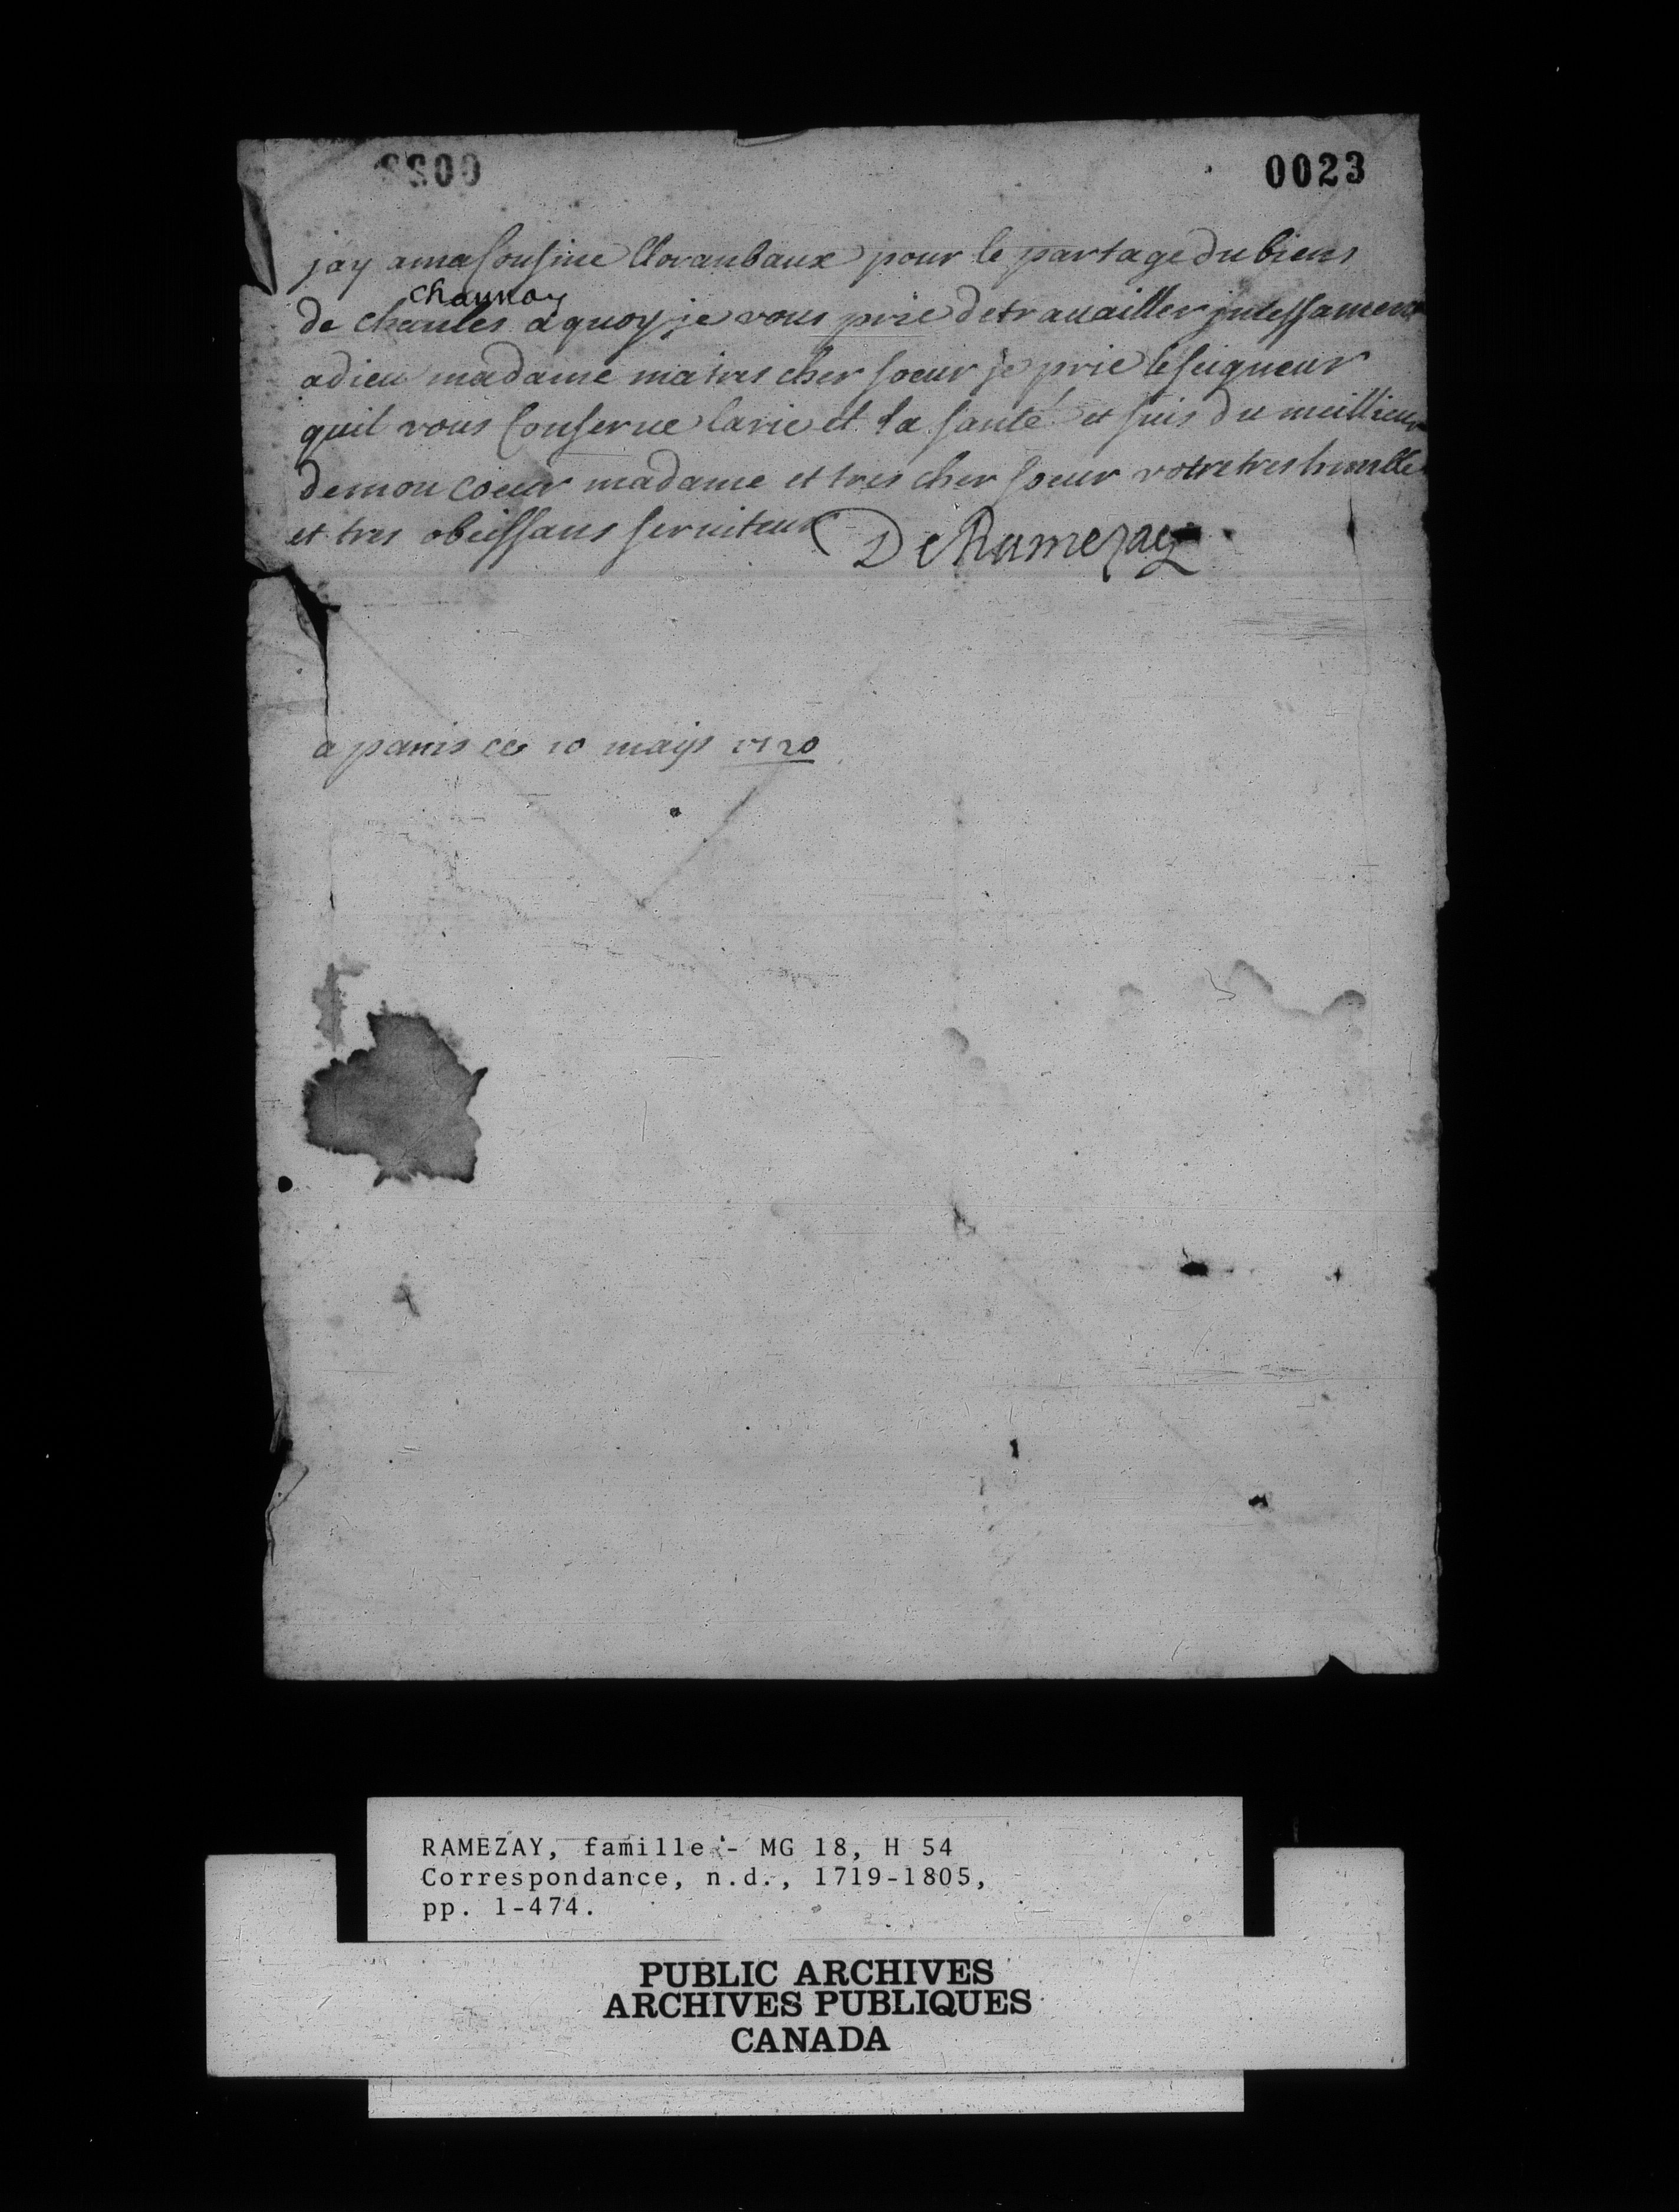 0023
jay a ma Cousine pour le partage du biens
chaunoy
de chaules a quoy je vous prie de trauailler jnsessament
adieu madame ma tres cher soeur je prie le seigneur
quil vous Conserue la vie et la santé et suis du meillieur
de mon coeur madame et tres cher soeur votre tres humble
et tres obeissans seruiteur DeRamezay
a paris ce 10 mays 1720
RAMEZAY, famille - MG 18, H 54
Correspondance, n.d., 1719-1805,
pp. 1-474.
PUBLIC ARCHIVES
ARCHIVES PUBLIQUES
CANADA